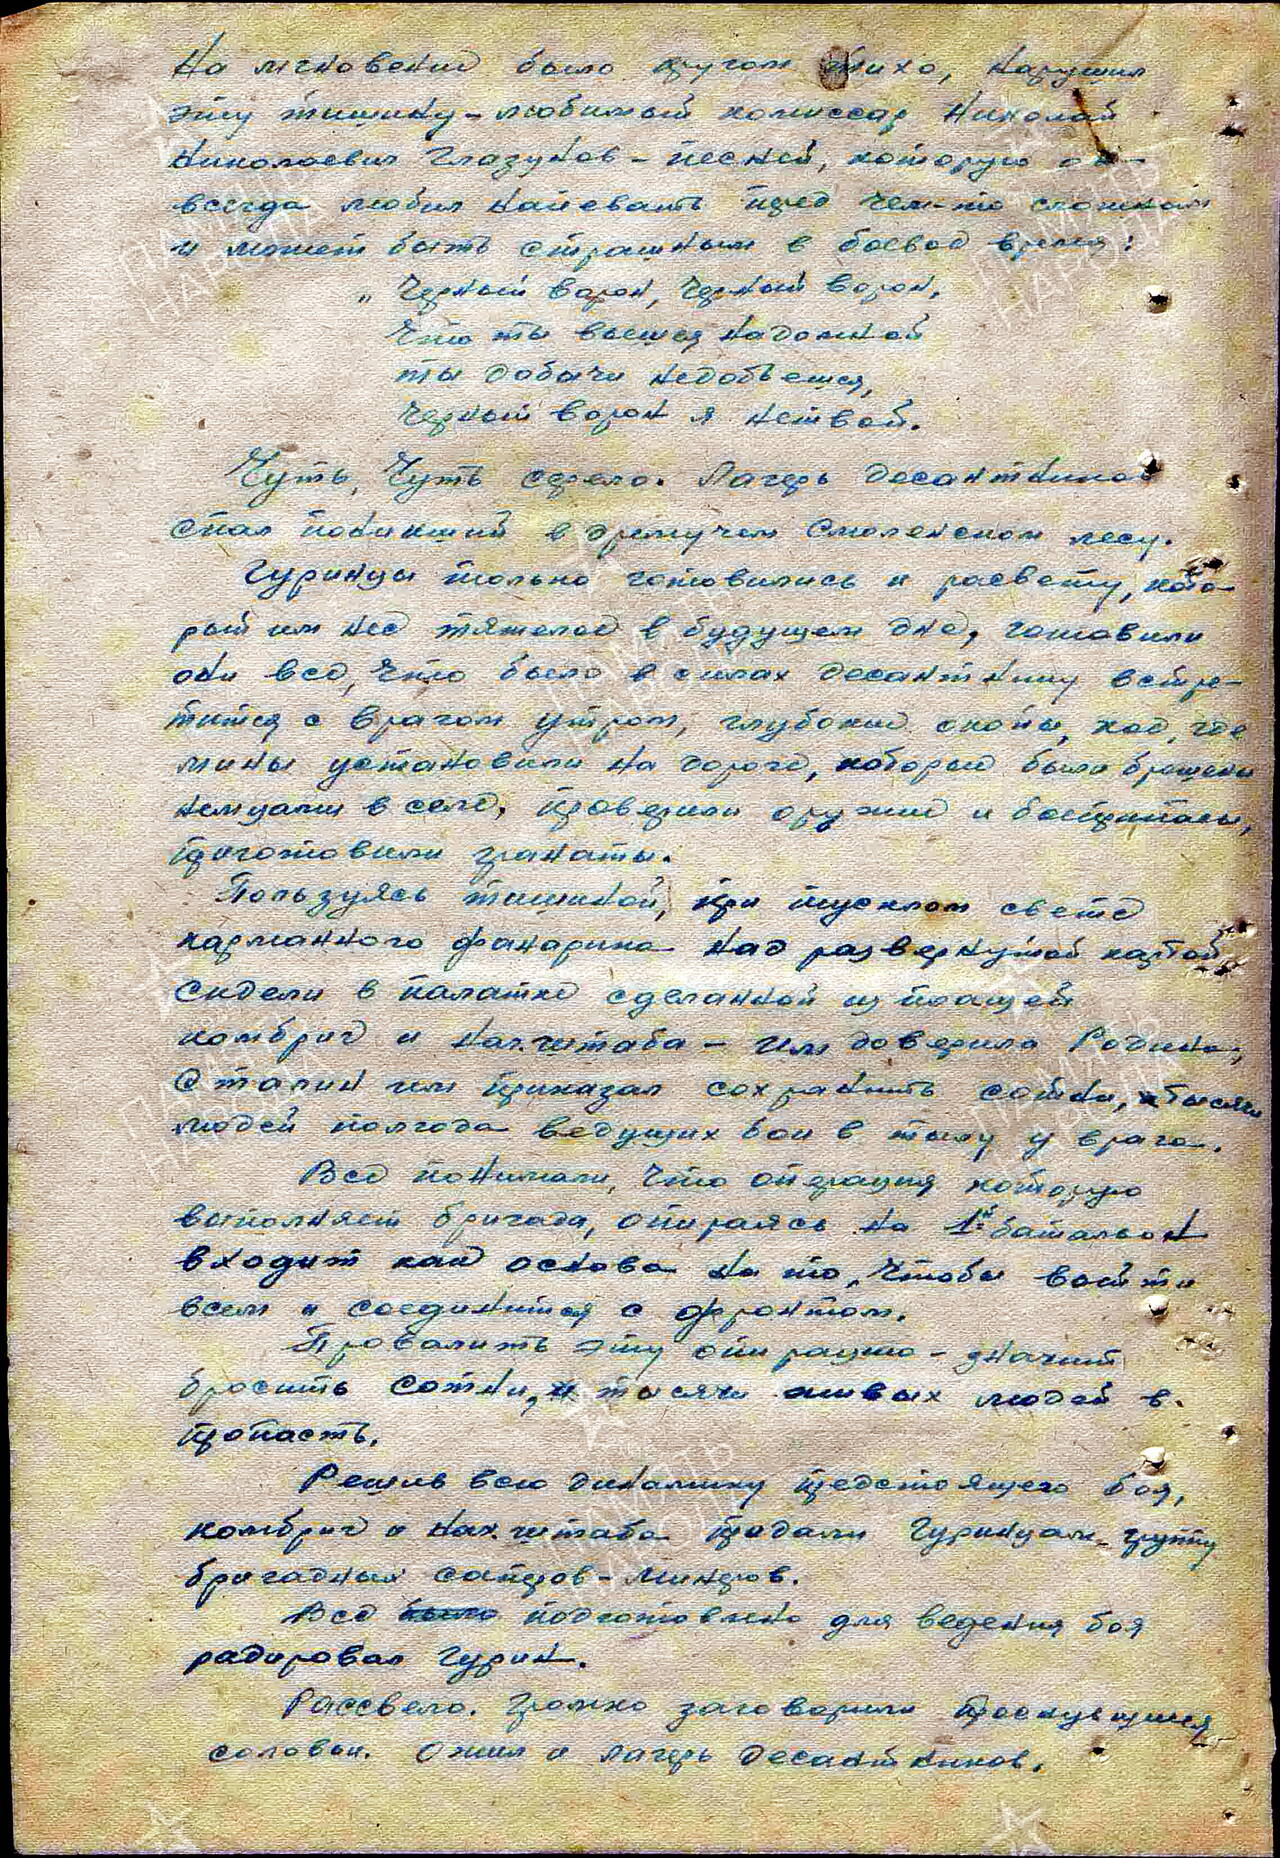 На мгновение было кругом тихо, нарушил
эту тишину - любимый комиссар Николай
Николаевич Глазунов - песней, которую он -
всегда любил напевать пред чем-то сложным
и может быть страшным в боевое время:
„ Черный ворон, Черный ворон,
Что ты вьешся надомной
ты добычи недобьешся,
Черный ворон я нетвой.
Чуть, Чуть серело. Лагерь десантников
спал поникший в дремучем Смоленском лесу.
Гуринцы только готовились к расвету, кото-
рый им нес тяжелое в будущем дне, готовили
они все, что было в силах десантнику встре-
тится с врагом утром, глубокие окопы, кое, где
мины установили на дороге, которые были брошены
немцами в селе, проверили оружие и боеприпасы,
приготовили гранаты.
Пользуясь тишиной, при тусклом свете
карманного фонарика над развернутой картой
сидели в палатке сделанной из плащей
комбриг и нач. штаба - им доверила Родина,
Сталин им приказал сохранить сотни, тысячи
людей полгода ведущих бои в тылу у врага.
Все понимали, что операция которую
выполняет бригада, опираясь на 1й батальон
входит как основа на то, чтобы войти
всем и соединится с фронтом.
Провалить эту операцию - значит
бросить сотни, тысячи живых людей в
пропасть.
Решив всю динамику предстоящего боя,
комбриг и нач. штаба придали Гуринцам - группу
бригадных саперов - минеров.
Все было подготовлено для ведения боя
радировал Гурин.
Рассвело. Громко заговорили проснувшиеся
соловьи. Ожил и лагерь десантников.
ПАМЯТЬ
НАРОДА